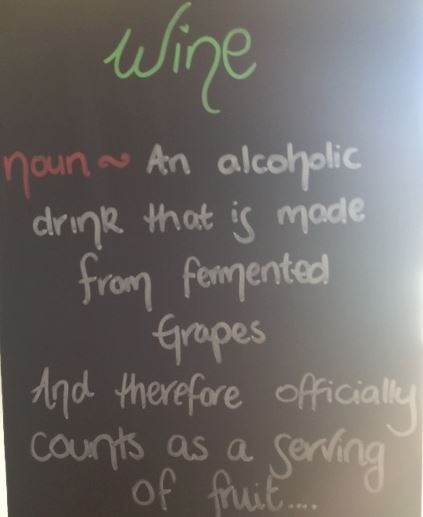 Wine
noun ~ An alcoholic
drink that is made
from fermented
Grapes
And therefore officially
counts as a serving
of fruit....